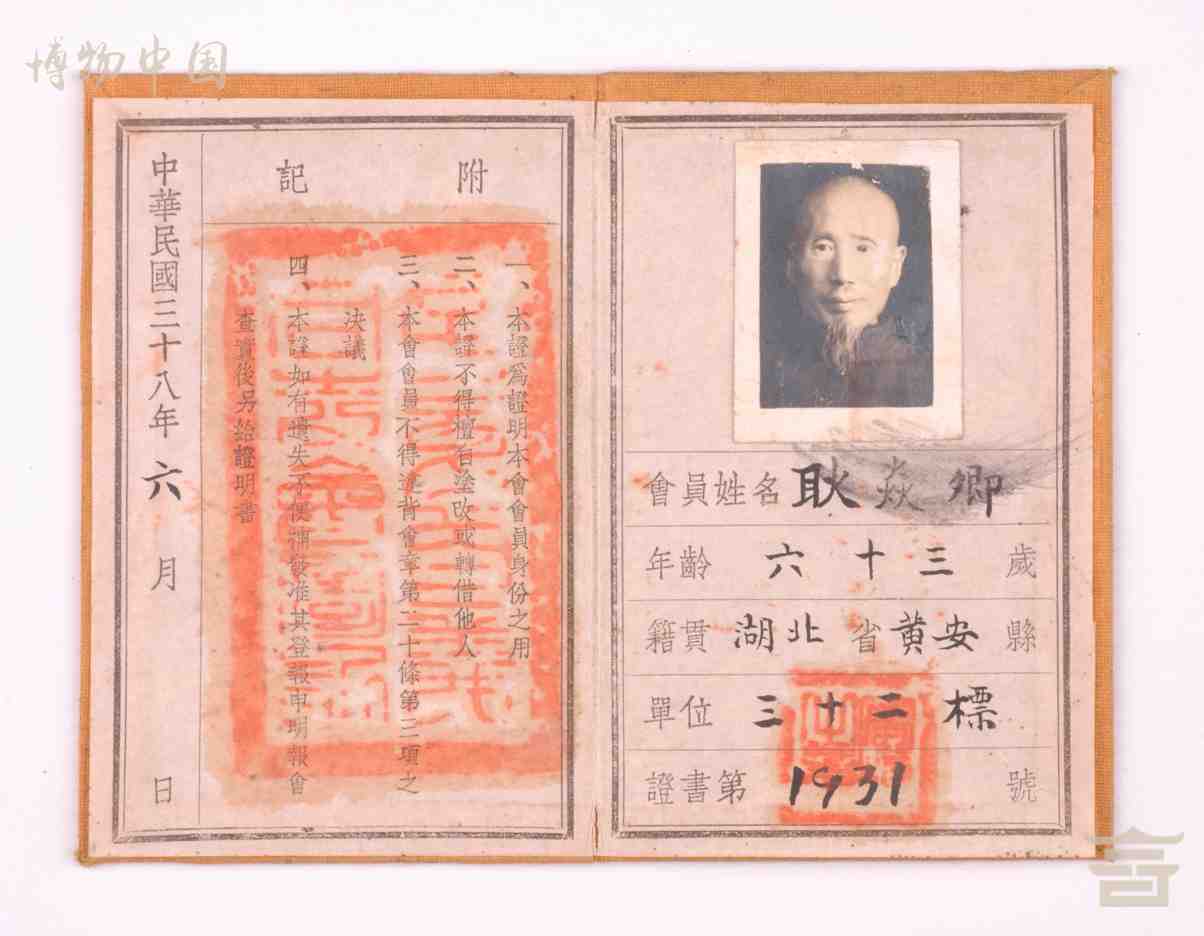 博物中国
會員姓名 耿焱卿
年齡 六十三 歲
籍貫 湖北 省 黄安 縣
單位 三十二標
證書第 1931 號
附記
一、本證爲證明本會會員身份之用
二、本證不得擅自塗改或轉借他人
三、本會會員不得違背會章第二十條第三項之
決議
四、本證如有遺失不便補發准其登報申明報會
查實後另給證明書
中華民國三十八年六月 日